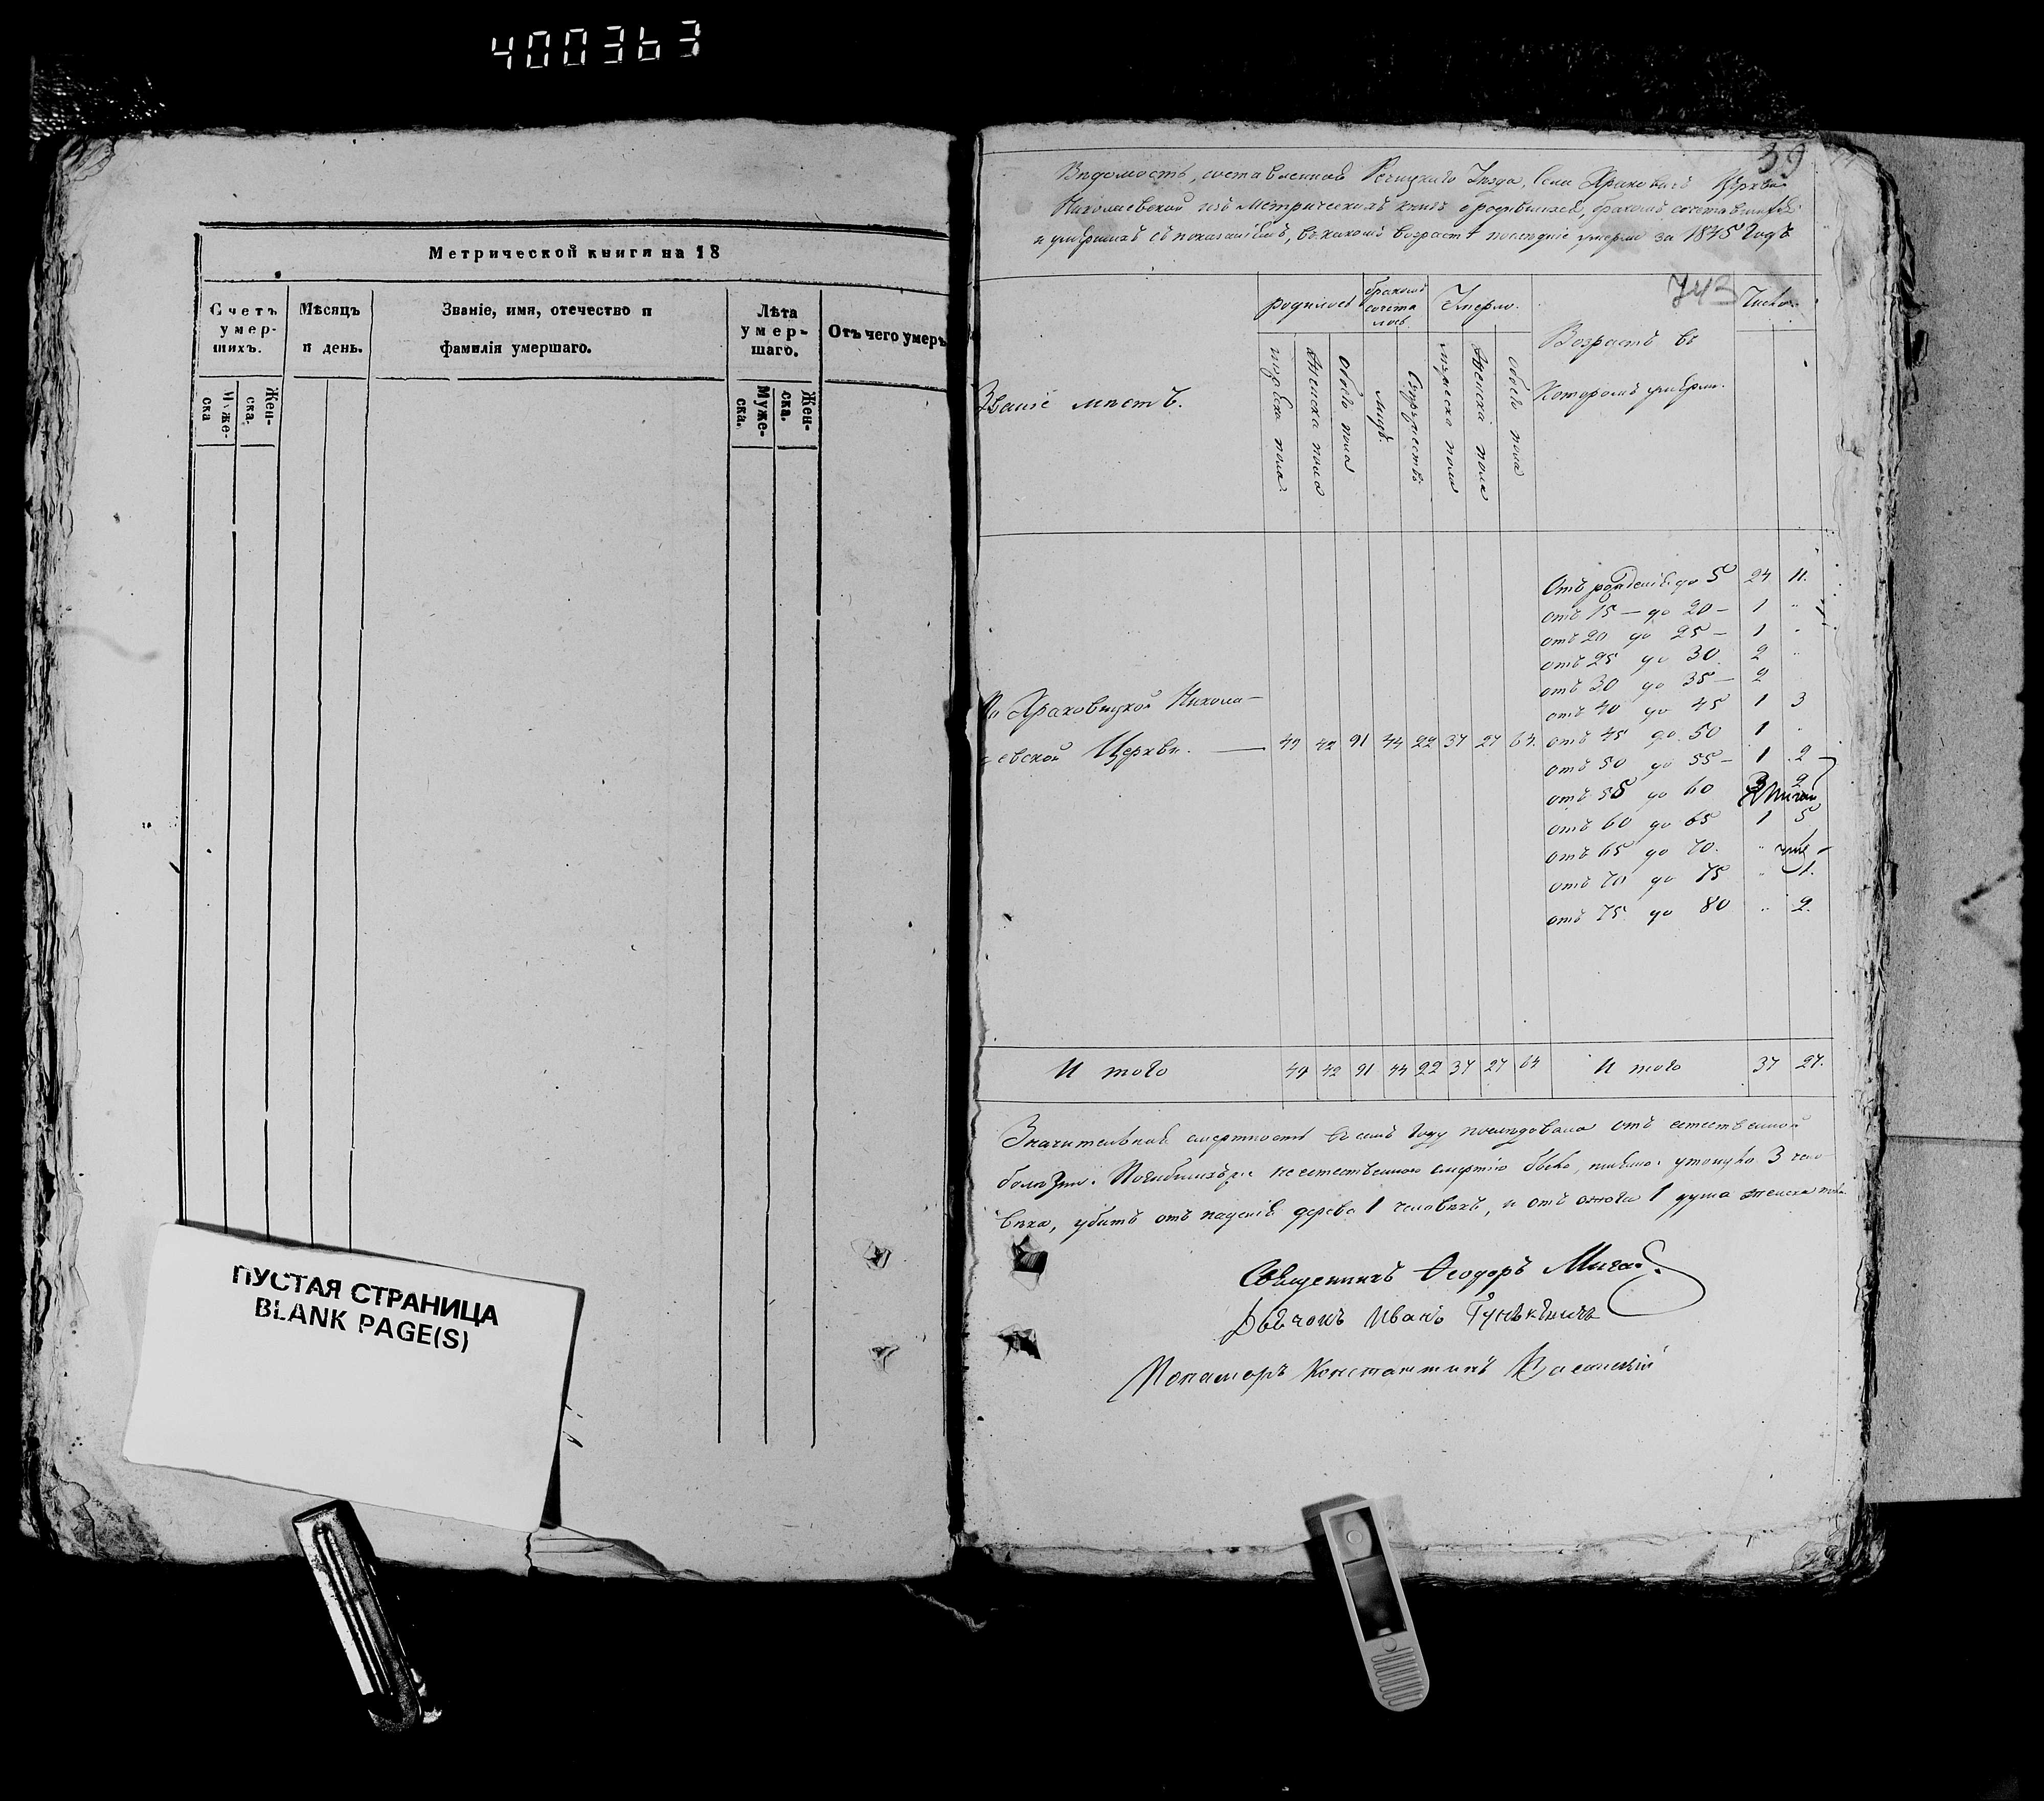 400363
Метрической книги на 18
Счетъ умер-шихъ.
Мѣсяцъ и день.
Званіе, имя, отечество и фамилія умершаго.
Лѣта умер-шаго.
Отъ чего умеръ
Муже-ска
Жен-ска.
Муже-ска.
Жен-ска.
ПУСТАЯ СТРАНИЦА
BLANK PAGE(S)
39
Вѣдомость, составленная Рѣчицкаго Уѣзда, села Храковичъ Церкви
Николаевской изъ метрическихъ книгъ о родившихся, бракомъ сочетавшихся
и умершихъ съ показаніемъ, въ какомъ возрастѣ послѣдніе умерли за 1845 годъ
743
Званіе мѣстъ.
родилось
бракомъ сочета лось
Умерло.
Возрастъ въ
Которомъ умерли.
Число.
мужеска пола
Женска пола
Обоего пола
лицъ
Супружествъ
мужеска пола
Женска пола
Обоего пола
Отъ рожденія до 5 24 11.
отъ 15 — до 20 — 1 "
отъ 20 до 25 — 1 "
отъ 25 до 30 2 "
отъ 30 до 35 — 2
отъ 40 до 45 1 3
По Храковицкой Никола-
евской Церкви. — 49 42 91 44 22 37 27 64. отъ 45 до 50 1 "
отъ 50 до 55 — 1 2
отъ 55 до 60 3 2
отъ 60 до 65 1 5
отъ 65 до 70. "
отъ 70 до 75 " 1.
отъ 75 до 80 " 2.
И того 49 42 91 44 22 37 27 64 И того 37 27.
Значительная смертность въ семъ году послѣдовала отъ естественной
болѣзни. Погибшихъ же неестественною смертію было, именно: утонуло 3 чело-
вѣка, убитъ отъ паденія дерева 1 человѣкъ, и отъ ожога 1 душа женска пола.
Священникъ Ѳеодоръ Мигай
Дьячокъ Иванъ
Пономарь Константинъ